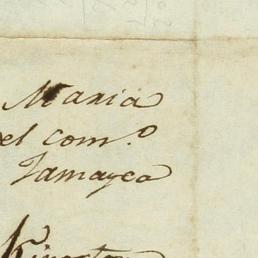 Maria
el com.o
Jamayca
Kingston